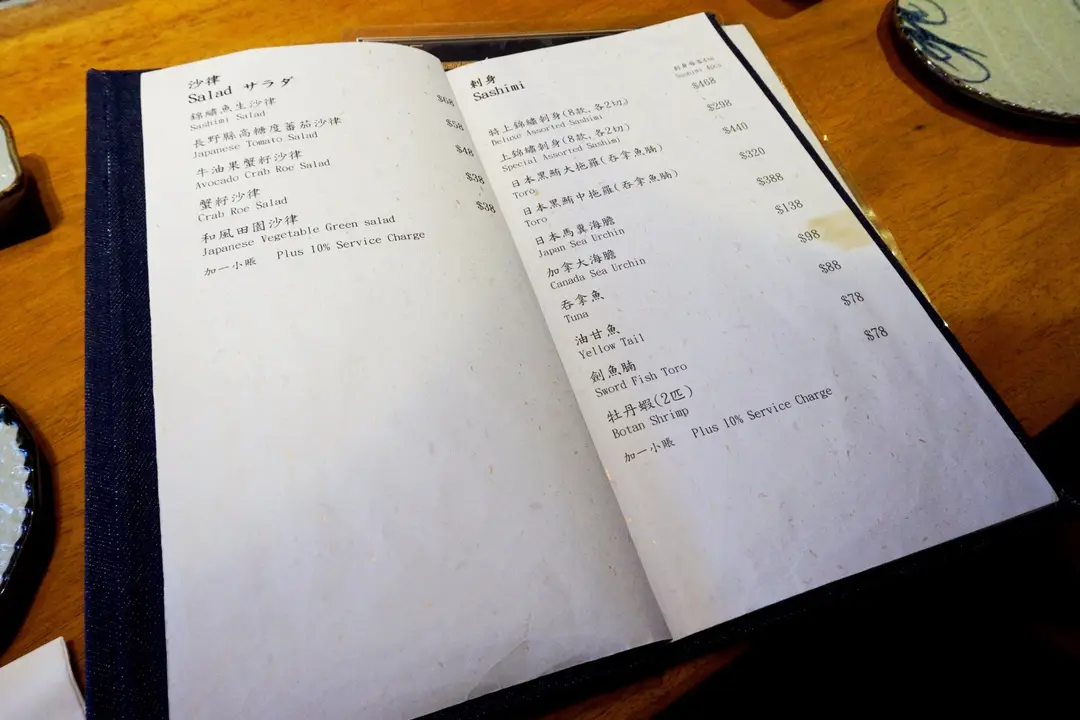 沙律
Salad サラダ
錦繡魚生沙律 $68
Sashimi Salad
長野縣高糖度蕃茄沙律 $58
Japanese Tomato Salad
牛油果蟹籽沙律 $48
Avocado Crab Roe Salad
蟹籽沙律 $38
Crab Roe Salad
和風田園沙律 $38
Japanese Vegetable Green salad
加一小賬 Plus 10% Service Charge
刺身
Sashimi
Sashimi
特上錦繡刺身(8款,各2切) $468
Deluxe Assorted Sashimi
上錦繡刺身(8款,各2切) $298
Special Assorted Sashimi
日本黑鮪大拖羅(吞拿魚腩) $440
Toro
日本黑鮪中拖羅(吞拿魚腩) $320
Toro
日本馬糞海膽 $388
Japan Sea Urchin
加拿大海膽 $138
Canada Sea Urchin
吞拿魚 $98
Tuna
油甘魚 $88
Yellow Tail
劍魚腩 $78
Sword Fish Toro
牡丹蝦(2匹) $78
Botan Shrimp
加一小賬 Plus 10% Service Charge